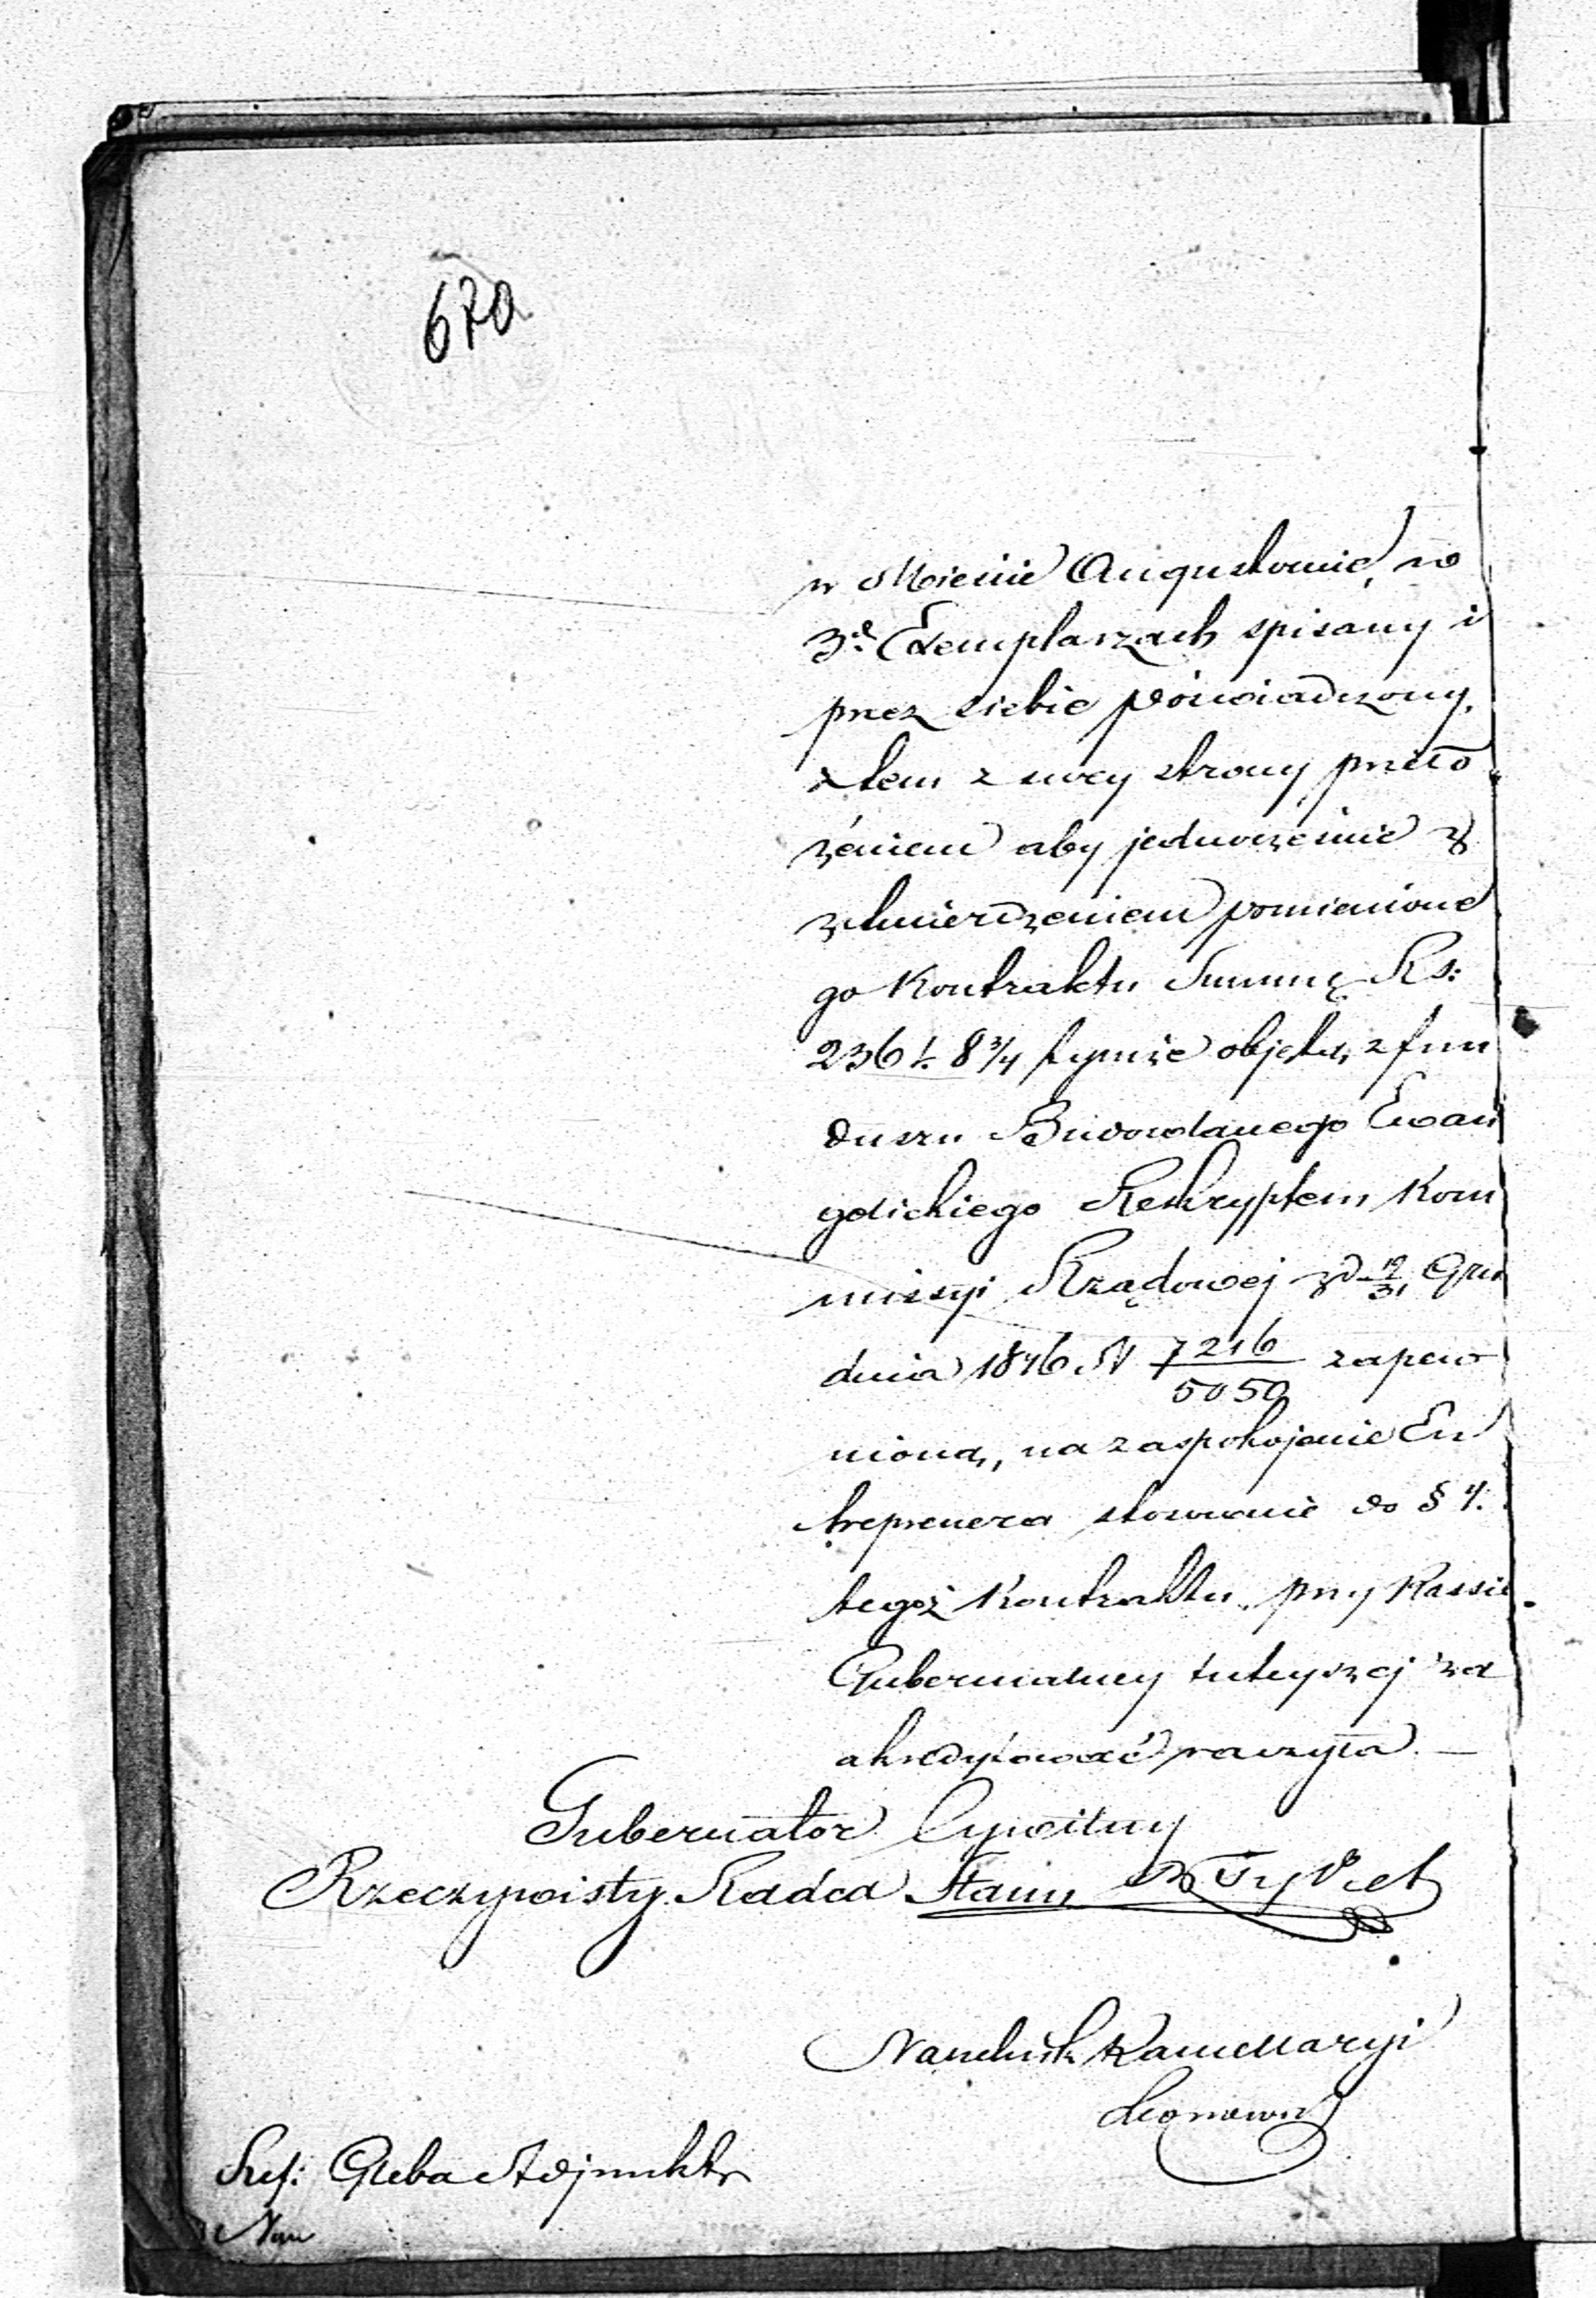 67a
w Mieście Augustowie, w
3ch Exemplarzach spisany i
przez siebie poświadczony,
z tem z swey strony przeło
żeniem aby jednocześnie z
zatwierdzeniem pomienione
go Kontraktu Summę Rs:
236 k. 8 3/4 tymże objętą, z fun
duszu Budowlanego Ewan
gelickiego Reskryptem Kom
missyi Rządowej z d 19/31 Gru
dnia 1846 N 7216/5050 zapew
nioną, na zaspokojenie En
treprenera stosownie do § 4.
tegoż Kontraktu, przy Kassie
Gubernialney tuteyszej za
akredytować raczyła. —
Gubernator Cywilny
Rzeczywisty Radca Stanu
Naczelnik Kancellaryi
Ref: Gleba Adjunkt